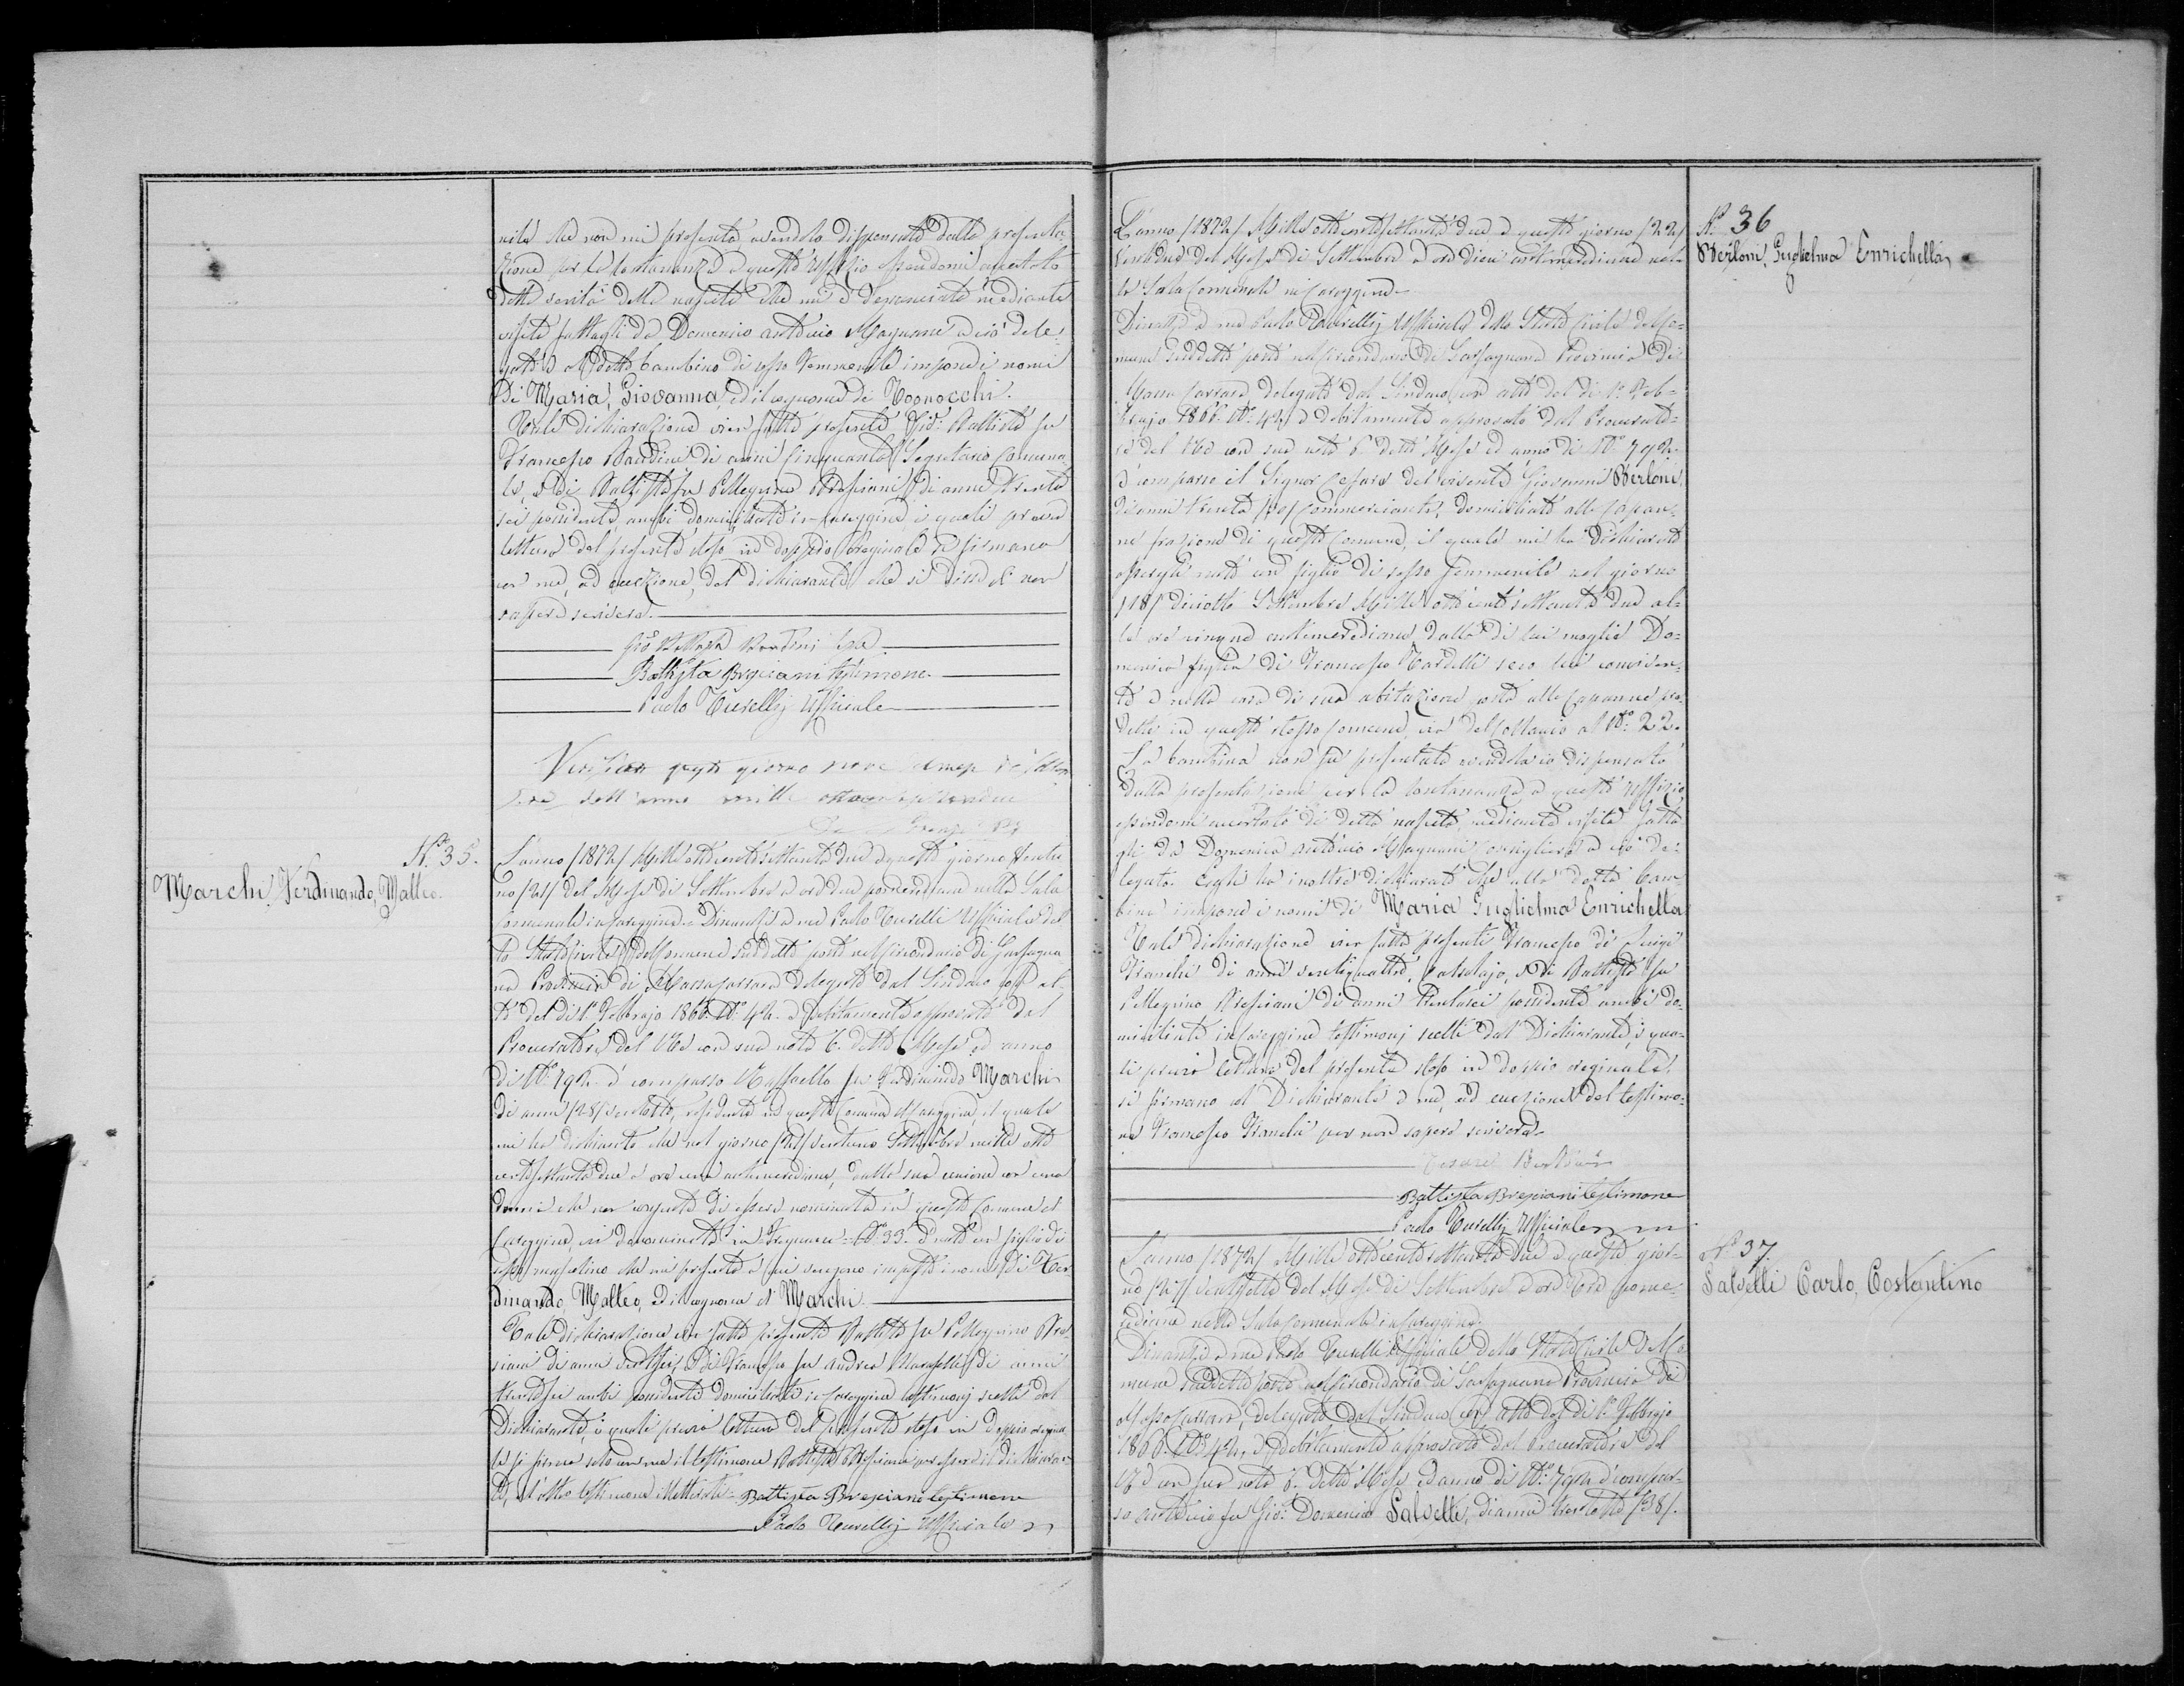 nile che non mi presenta avendolo dispensato dalla presenta-
zione per la lontananza a quest'Uffizio essendomi accertato
della verità della nascita che mi è denunciata mediante
visita fattagli da Domenico Antonio Magnani a ciò dele-
gato e al detto bambino di sesso femmenile impone i nomi
Di Maria, Giovanna, ed il cognome di Tognocchi.
Tale dichiarazione vien fatta presenti Gio: Battista fu
Francesco Bandini di anni Cinquanta Segretario Comuna-
le, e di Battista fu Pellegrino Bresciani di anni trenta
sei possidente ambi domiciliati in Careggine i quali previa
lettura del presente steso in doppio originale si firmano
con me, ad eccezione del dichiarante che si disse di non
sapere scrivere.
Gio Battista Bandini
Battista Bresciani testimone
Paolo Turelli Ufficiale
Verificato questo giorno nove
dell'anno mille
N.° 35.
Marchi, Ferdinando, Matteo.
L'anno /1872/ Mille ottocentosettanta due a questo giorno Ventu-
no /21/ del Mese di Settembre a ore due pomeridiane nella Sala
Comunale in Careggine. Dinanzi a me Paolo Turelli Uffiziale del-
lo Stato Civile del Comune suddetto posto nel Circondario di Garfagna-
na Provincia di Massacarrara delegato dal Sindaco con at-
to del dì 1° Febbrajo 1866. N.° 42. e debitamente approvato dal
Procuratore del Re con sua nota 6. detto Mese ed anno
di N.° 792. è comparso Raffaello fu Ferdinando Marchi
di anni /28/ ventotto, residente in questo Comune di Careggine, il quale
mi ha dichiarato che nel giorno /21/ ventuno Settembre mille otto
centosettanta due a ore una antimeridiana, dalla sua unione con una
donna che non consente di essere nominata in questo Comune di
Careggine, in N.° 33. è nato un figlio di
sesso mascolino che mi presenta a cui vengono imposti i nomi di Fer-
dinando, Matteo, ed il cognome di Marchi.
Tale dichiarazione vien fatta presenti Battista fu Pellegrino Bre-
sciani di anni trentasei e di Francesco fu Andrea di anni
trentasei ambi possidenti domiciliati in Careggine testimonj scelti dal
Dichiarante, i quali previa lettura del presente steso in doppio origina-
le si firma solo con me il testimone Battista Bresciani per essere il dichiaran-
te, e l'altro testimone illetterati. Battista Bresciani testimone
Paolo Turelli Ufficiale
N.° 36
Berloni, Guglielma Enrichella
L'anno /1872/ Mille ottocentosettanta due a questo giorno /22/
Ventidue del Mese di Settembre a ore dieci antimeridiane nel-
la Sala Comunale in Careggine
Dinanzi a me Paolo Turelli Uffiziale dello Stato Civile del Co-
mune suddetto posto nel Circondario di Garfagnana Provincia di
Massa Carrara, delegato dal Sindaco con atto del dì 1° Feb-
brajo 1866. N.° 42 e debitamente approvato dal Procurato-
re del Re con sua nota 6 detto Mese ed anno di N.° 792.
è comparso il Signor Cesare del vivente Giovanni Berloni
di anni trenta commerciante, domiciliato alle Capan-
ne frazione di questo Comune, il quale mi ha dichiarato
essergli nato un figlio di sesso femmenile nel giorno
/18/ diciotto Settembre Mille ottocento settanta due al-
le ore cinque antimeridiane dalla di lui moglie Do-
menica figlia di Francesco Nardelli seco lui conviven-
te e nella casa di sua abitazione posta alle Capanne pre-
dette in questo stesso Comune, al N.° 22.
La bambina non fu presentata avendola io dispensato
dalla presentazione per la lontananza a quest'Uffizio
essendomi accertato di detta nascita mediante visita fatta-
gli da Domenico Antonio Magnani Consigliere a ciò de-
legato. Egli ha inoltre dichiarato che alla detta bam-
bina impone i nomi di Maria Guglielma Enrichella
Tale dichiarazione vien fatta presenti Francesco di Luigi
Franchi di anni ventiquattro, calzolajo, e di Battista fu
Pellegrino Bresciani di anni trentasei possidente ambi do-
miciliati in Careggine testimonj scelti dal Dichiarante, i qua-
li previa lettura del presente steso in doppio originale,
si firmano il Dichiarante e me, ad eccezione del testimo-
ne Francesco Franchi per non sapere scrivere
Cesare Bertoni
Battista Bresciani testimone
Paolo Turelli Ufficiale
N.° 37.
Salvelli Carlo, Costantino
L'anno /1872/ Mille ottocento settanta due a questo gior-
no /27/ ventisette del Mese di Settembre a ore tre pome-
ridiane nella Sala Comunale in Careggine.
Dinanzi a me Paolo Turelli Uffiziale dello Stato Civile del Co-
mune suddetto posto nel Circondario di Garfagnana Provincia di
Massa Carrara, delegato dal Sindaco con atto del dì 1° Febbrajo
1866. N.° 42, e debitamente approvato dal Procuratore del
Re con sua nota 6. detto Mese ed anno di N.° 792 è compar-
so Antonio fu Gio: Domenico Salvelli, di anni trentotto /38/.